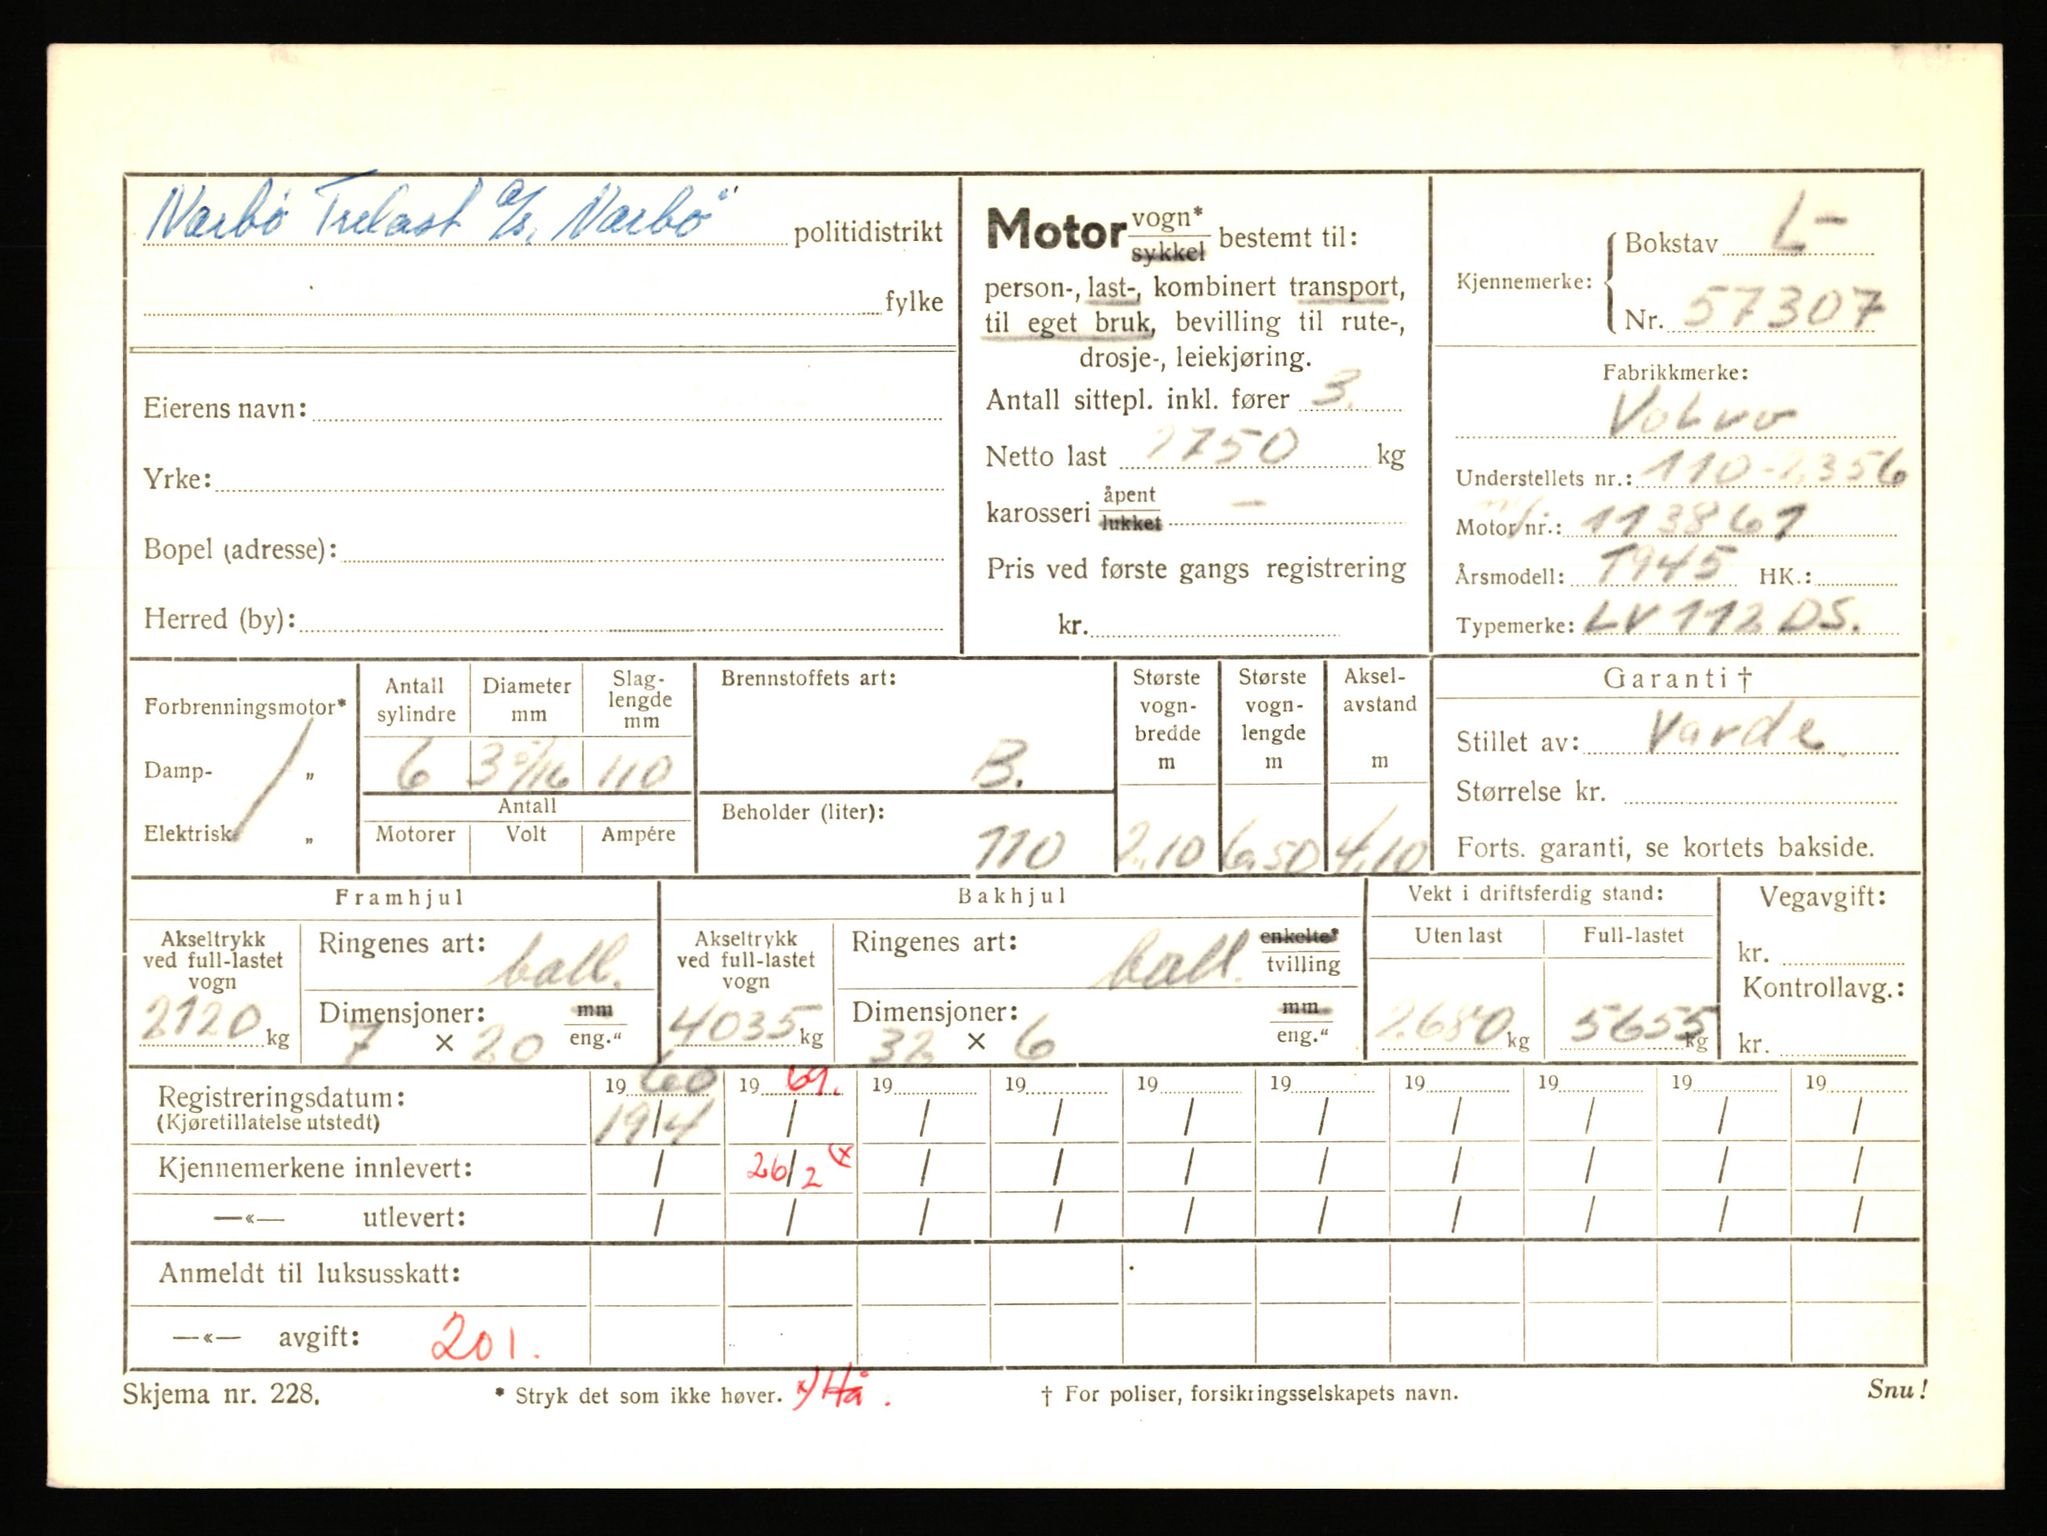 Nærbø Trelast a/s, Nærbø politidistrikt
fylke
Eierens navn:
Yrke:
Bopel (adresse):
Herred (by):
Motor vogn* sykkel bestemt til:
person-, last-, kombinert transport,
til eget bruk, bevilling til rute-,
drosje-, leiekjøring.
Antall sittepl. inkl. fører 3.
Netto last 2750 kg
karosseri åpent lukket —
Pris ved første gangs registrering
kr.
Kjennemerke: Bokstav L-
Nr. 57307
Fabrikkmerke:
Volvo
Understellets nr.: 110-2356
Motor nr.: 113861
Årsmodell: 1945 HK.:
Typemerke: LV 112 DS.
Forbrenningsmotor*
Damp- „
Elektrisk „
Antall sylindre
6
Diameter mm
3 5/16
Slag-lengde mm
110
Antall
Motorer Volt Ampére
Brennstoffets art:
B.
Beholder (liter):
110
Største vogn-bredde m
2.10
Største vogn-lengde m
6,50
Aksel-avstand m
4,10
Garanti †
Stillet av: Varde
Størrelse kr.
Forts. garanti, se kortets bakside.
Framhjul
Akseltrykk ved full-lastet vogn
2120 kg
Ringenes art: ball.
Dimensjoner: mm
7 × 20 eng."
Bakhjul
Akseltrykk ved full-lastet vogn
4035 kg
Ringenes art: ball. enkelte* tvilling
Dimensjoner: mm
32 × 6 eng."
Vekt i driftsferdig stand:
Uten last Full-lastet
2680 kg 5655 kg
Vegavgift:
kr.
Kontrollavg.:
kr.
19 60 19 61. 19 19 19 19 19 19 19 19
Registreringsdatum: 19/4 / / / / / / / / /
(Kjøretillatelse utstedt)
Kjennemerkene innlevert: / 26/2 x) / / / / / / / /
—«— utlevert: / / / / / / / / / /
Anmeldt til luksusskatt:
—«— avgift: 201.
Skjema nr. 228. * Stryk det som ikke høver. x) Hå. † For poliser, forsikringsselskapets navn. Snu!